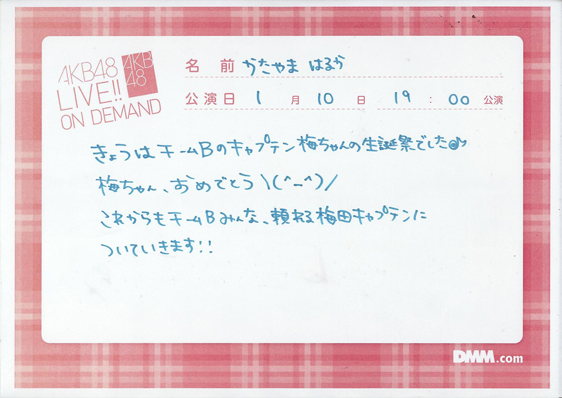 AKB48
LIVE!!
ON DEMAND
AKB
48
名 前 かたやま はるか
公演日 1 月 10 日 19 : 00 公演
きょうはチームBのキャプテン梅ちゃんの生誕祭でした♪
梅ちゃん、おめでとう\(^-^)/
これからもチームBみんな、頼れる梅田キャプテンに
ついていきます!!
DMM.com